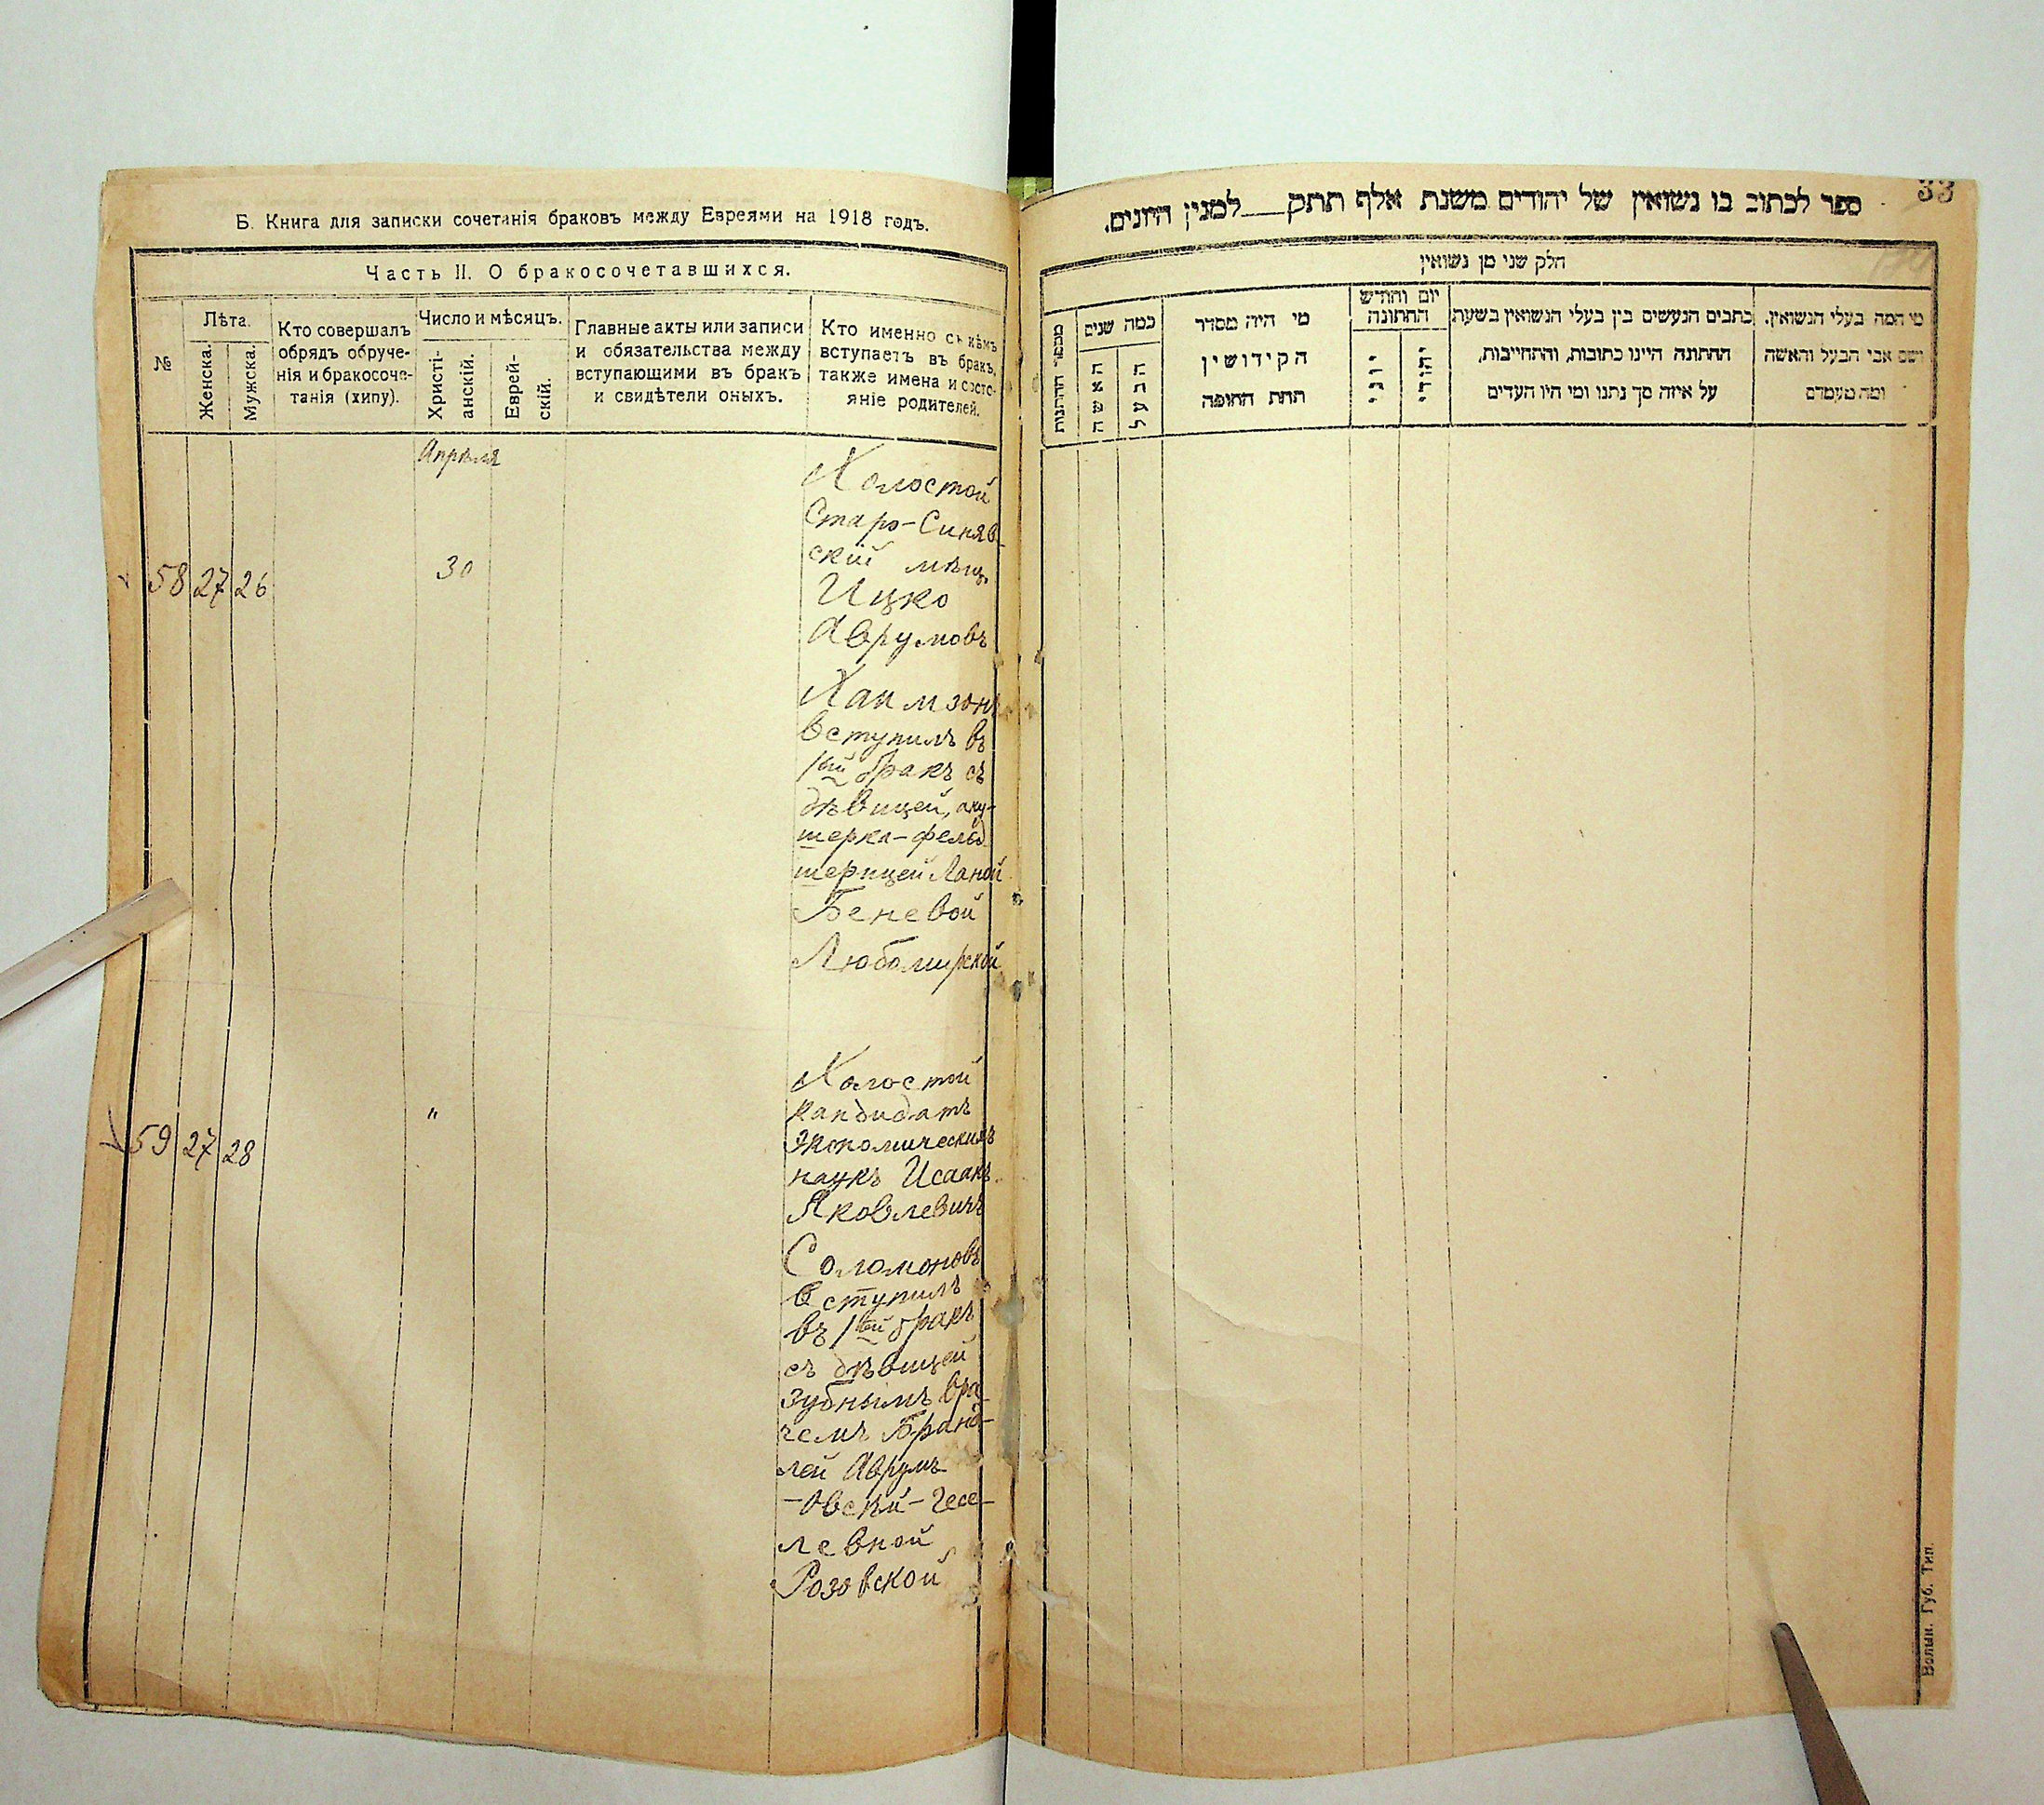 Б. Книга для записки сочетанія браковъ между Евреями на 1918 годъ.
Часть II. О бракосочетавшихся.
№
Лѣта.
Женска.
Мужска.
Кто совершалъ
обрядъ обруче-
нія и бракосоче-
танія (хипу).
Число и мѣсяцъ.
Христі-
анскій.
Еврей-
скій.
Главные акты или записи
и обязательства между
вступающими въ бракъ
и свидѣтели оныхъ.
Кто именно съ кѣмъ
вступаетъ въ бракъ,
также имена и состо-
яніе родителей.
Апрѣля
58 27 26
30
Холостой
Старо-Синяв-
скій мѣщ.
Ицко
Аврумовъ
вступилъ въ
1ый бракъ съ
дѣвицей, аку-
шерка-фельд
шерицей
Беневой
Любомирской
59 27 28
"
Холостой
кандидатъ
экономическихъ
наукъ Исаакъ
Яковлевичъ
Соломоновъ
вступилъ
въ 1ый бракъ
съ дѣвицей
зубнымъ вра-
чемъ Бранд-
лей Аврумъ
левной
Розовской
33
ספר לכתוב בו נשואין של יהודים משנת אלף תתק___למנין היונים.
חלק שני מן נשואין
מספר החתונות
כמה שנים
האשה
הבעל
מי היה מסדר
הקידושין
תחת החופה
יום וחודש
החתונה
יוני
יהודי
כתבים הנעשים בין בעלי הנשואין בשעת
החתונה היינו כתובות, והתחייבות,
על איזה סך נתנו ומי היו העדים
מי המה בעלי הנשואין.
ושם אבי הבעל והאשה
ומה מעמדם
Волын. Губ. Тип.